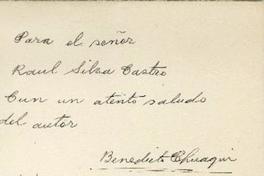 Para el señor
Raul Silva Castro
Con un atento saludo
del autor
Benedicto Chuaqui